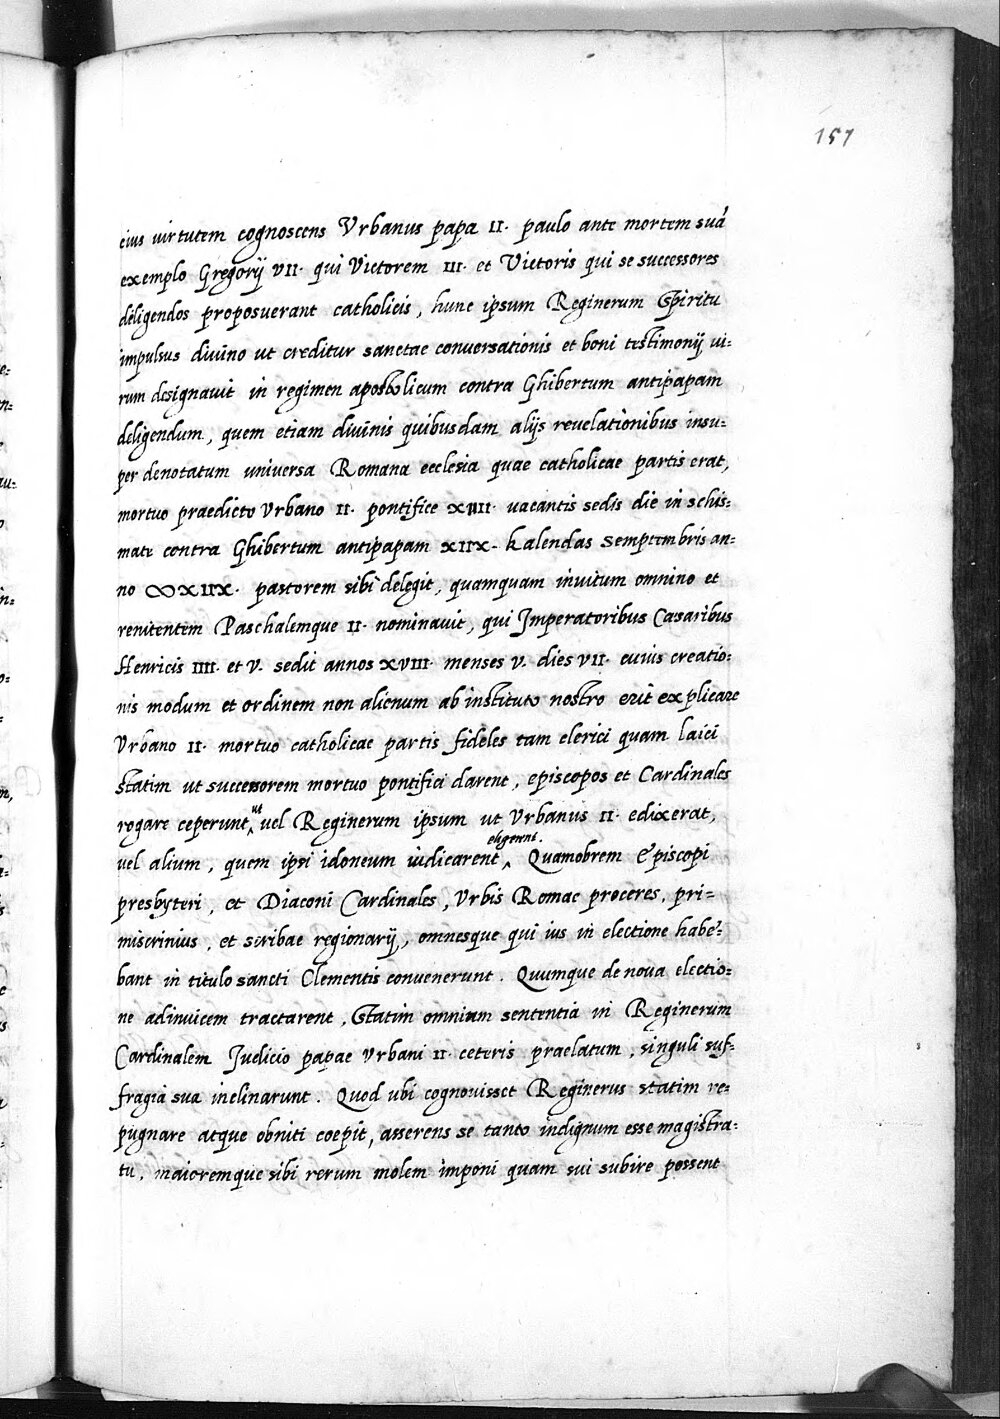 157
eius virtutem cognoscens Vrbanus papa II. paulo ante mortem suā
exemplo Gregorij VII. qui Victorem III. et Victoris qui se successores
deligendos proposuerant catholicis, hunc ipsum Reginerum Spiritu
impulsus divino ut creditur sanctae conversationis et boni testimonij vi=
rum designavit in regimen apostolicum contra Ghibertum antipapam
deligendum, quem etiam divinis quibusdam alijs revelationibus insu=
per denotatum universa Romana ecclesia quae catholicae partis erat,
mortuo praedicto Vrbano II. pontifice XIIII. vacantis sedis die in schis=
mate contra Ghibertum antipapam XIIX. kalendas Semptembris an=
no ∞XIIX. pastorem sibi delegit, quamquam invitum omnino et
renitentem Paschalemque II. nominavit, qui Imperatoribus Caesaribus
Henricis IIII. et V. sedit annos XVIII. menses V. dies VII. cuius creatio=
nis modum et ordinem non alienum ab instituto nostro erit explicare
Vrbano II. mortuo catholicae partis fideles tam clerici quam laici
statim ut successorem mortuo pontifici darent, episcopos et Cardinales
rogare ceperunt, ut vel Reginerum ipsum ut Vrbanus II. edixerat,
vel alium, quem ipsi idoneum iudicarent eligerent. Quamobrem Episcopi
presbyteri, et Diaconi Cardinales, Vrbis Romae proceres, pri=
miscrinius, et scribae regionarij, omnesque qui ius in electione habe=
bant in titulo sancti Clementis convenerunt. Quumque de nova electio=
ne adinvicem tractarent, Statim omnium sententia in Reginerum
Cardinalem Judicio papae Vrbani II. ceteris praelatum, singuli suf=
fragia sua inclinarunt. Quod ubi cognovisset Reginerus statim re=
pugnare atque obniti coepit, asserens se tanto indignum esse magistra=
tu, maioremque sibi rerum molem imponi quam sui subire possent